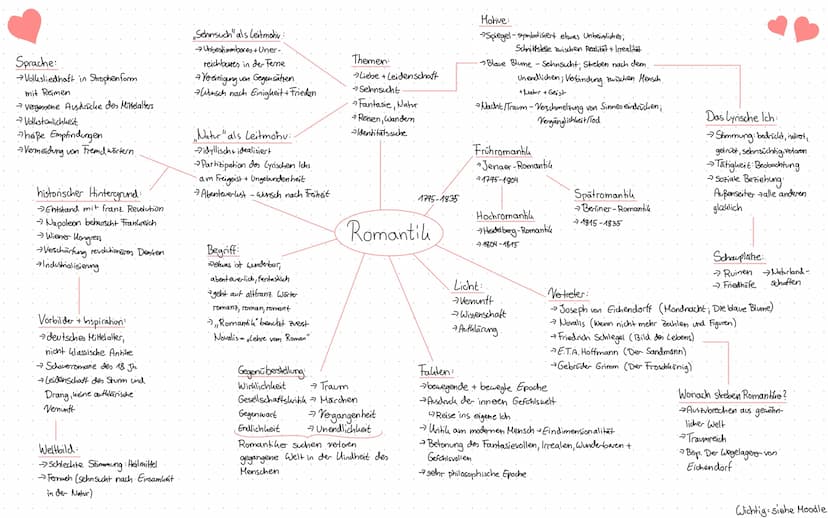 Sprache:
→ Volksliedhaft in Strophenform
mit Reimen
→ vergangene Ausdrücke des Mittelalters
→ Volkstümlichkeit
→ Empfindungen
→ Vermeidung von Fremdwörtern
"Sehnsuch" als Leitmotiv:
→ Unbestimmbares + Uner-
reichbares in der Ferne
→ Vereinigung von Gegensätzen
→ Wunsch nach Einigkeit + Frieden
"Natur" als Leitmotiv:
→ idyllisch + idealisiert
→ Partizipation des Lyrischen Ichs
am Freigeist + Ungebundenheit
→ Abenteuerlust - Wunsch nach Freiheit
Themen:
→ Liebe + Leidenschaft
→ Sehnsucht
→ Fantasie, Natur
→ Reisen, Wandern
→ Identitätssuche
Motive:
→ Spiegel - symbolisiert etwas Unheimliches;
Schnittstelle zwischen Realität + Irrealität
→ Blaue Blume - Sehnsucht; Streben nach dem
unendlichen; Verbindung zwischen Mensch
+ Natur + Geist
→ Nacht/Traum - Verschmelzung von Sinneseindrücken;
Vergänglichkeit/Tod
Das Lyrische Ich:
→ Stimmung: bedrückt,
getrübt, sehnsüchtig, verloren
→ Tätigkeit: Beobachtung
→ Soziale Beziehung:
Außenseiter → alle anderen
glücklich
Schauplätze:
→ Ruinen → Naturland-
→ Friedhöfe schaften
historischer Hintergrund:
→ Entstand mit franz. Revolution
→ Napoleon beherrscht Frankreich
→ Wiener Kongress
→ Verschärfung revolutionären Denken
→ Industrialisierung
Frühromantik
→ Jenaer-Romantik
→ 1795-1804
1795-1835
Hochromantik
→ Heidelberg-Romantik
→ 1804-1815
Spätromantik
→ Berliner-Romantik
→ 1815-1835
Romantik
Begriff:
→ etwas ist wunderbar,
abenteuerlich, fantastisch
→ geht auf altfranz. Wörter
romanz, roman, romant
→ "Romantik" benutzt zuerst
Novalis - "Lehre vom Roman"
Licht:
→ Vernunft
→ Wissenschaft
→ Aufklärung
Vertreter:
→ Joseph von Eichendorff (Mondnacht; Die blaue Blume)
→ Novalis (Wenn nicht mehr Zahlen und Figuren)
→ Friedrich Schlegel (Bild des Lebens)
→ E.T.A. Hoffmann (Der Sandmann)
→ Gebrüder Grimm (Der Froschkönig)
Wonach streben Romantiker?
→ Ausbrechen aus gewöhn-
licher Welt
→ Traumreich
→ Bsp. Der Wegelagerer von
Eichendorf
Vorbilder + Inspiration:
→ deutsches Mittelalter,
nicht klassische Antike
→ Schauerromane des 18 Jh.
→ Leidenschaft des Sturm und
Drang, keine aufklärische
Vernunft
Weltbild:
→ Schlechte Stimmung: Heilmittel
→ Fernweh (Sehnsucht nach Einsamkeit
in der Natur)
Gegenüberstellung:
Wirklichkeit → Traum
Gesellschaftskritik → Märchen
Gegenwart → Vergangenheit
Endlichkeit → Unendlichkeit
Romantiker suchen verloren
gegangene Welt in der Kindheit des
Menschen
Fakten:
→ bewegende + bewegte Epoche
→ Ausdruck der inneren Gefühlswelt
↳ Reise ins eigene Ich
→ Kritik am modernen Mensch → Eindimensionalität
→ Betonung des Fantasievollen, Irrealen, Wunderbaren +
Gefühlsvollen
→ sehr philosophische Epoche
Wichtig: siehe Moodle